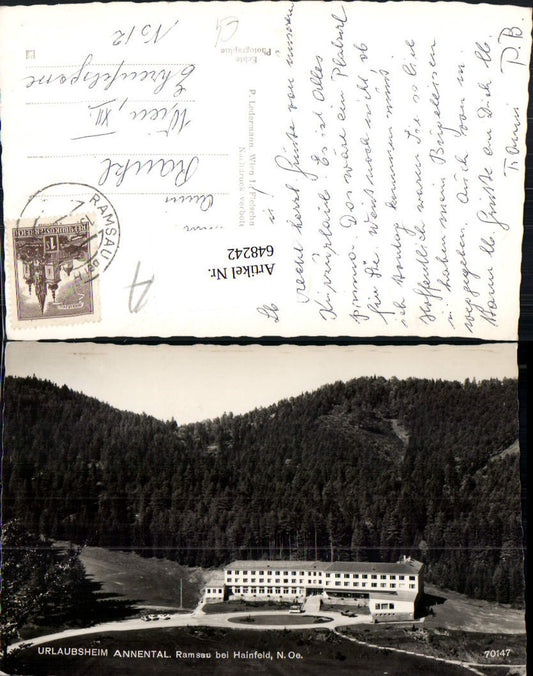 recht herzl. Grüße von unserem
Kurzurlaub. Es ist alles
prima. Das wäre ein Platzerl
für Sie. Weiß noch nicht ob
ich Montag kommen muß.
Hoffentlich waren Sie so lieb
u. haben mein Bügeleisen
weggegeben. Auch von m.
Mann lb. Grüße an Dich lb.
P. B.
Wien, XII
Ehrenfelsgasse
No 12
Echte
Photographie
P. Ledermann, Wien I, Fleischm
Nachdruck verboten
RAMSAU
REPUBLIK ÖSTERREICH
Artikel Nr.
648242
URLAUBSHEIM ANNENTAL. Ramsau bei Hainfeld, N. Oe.
70147